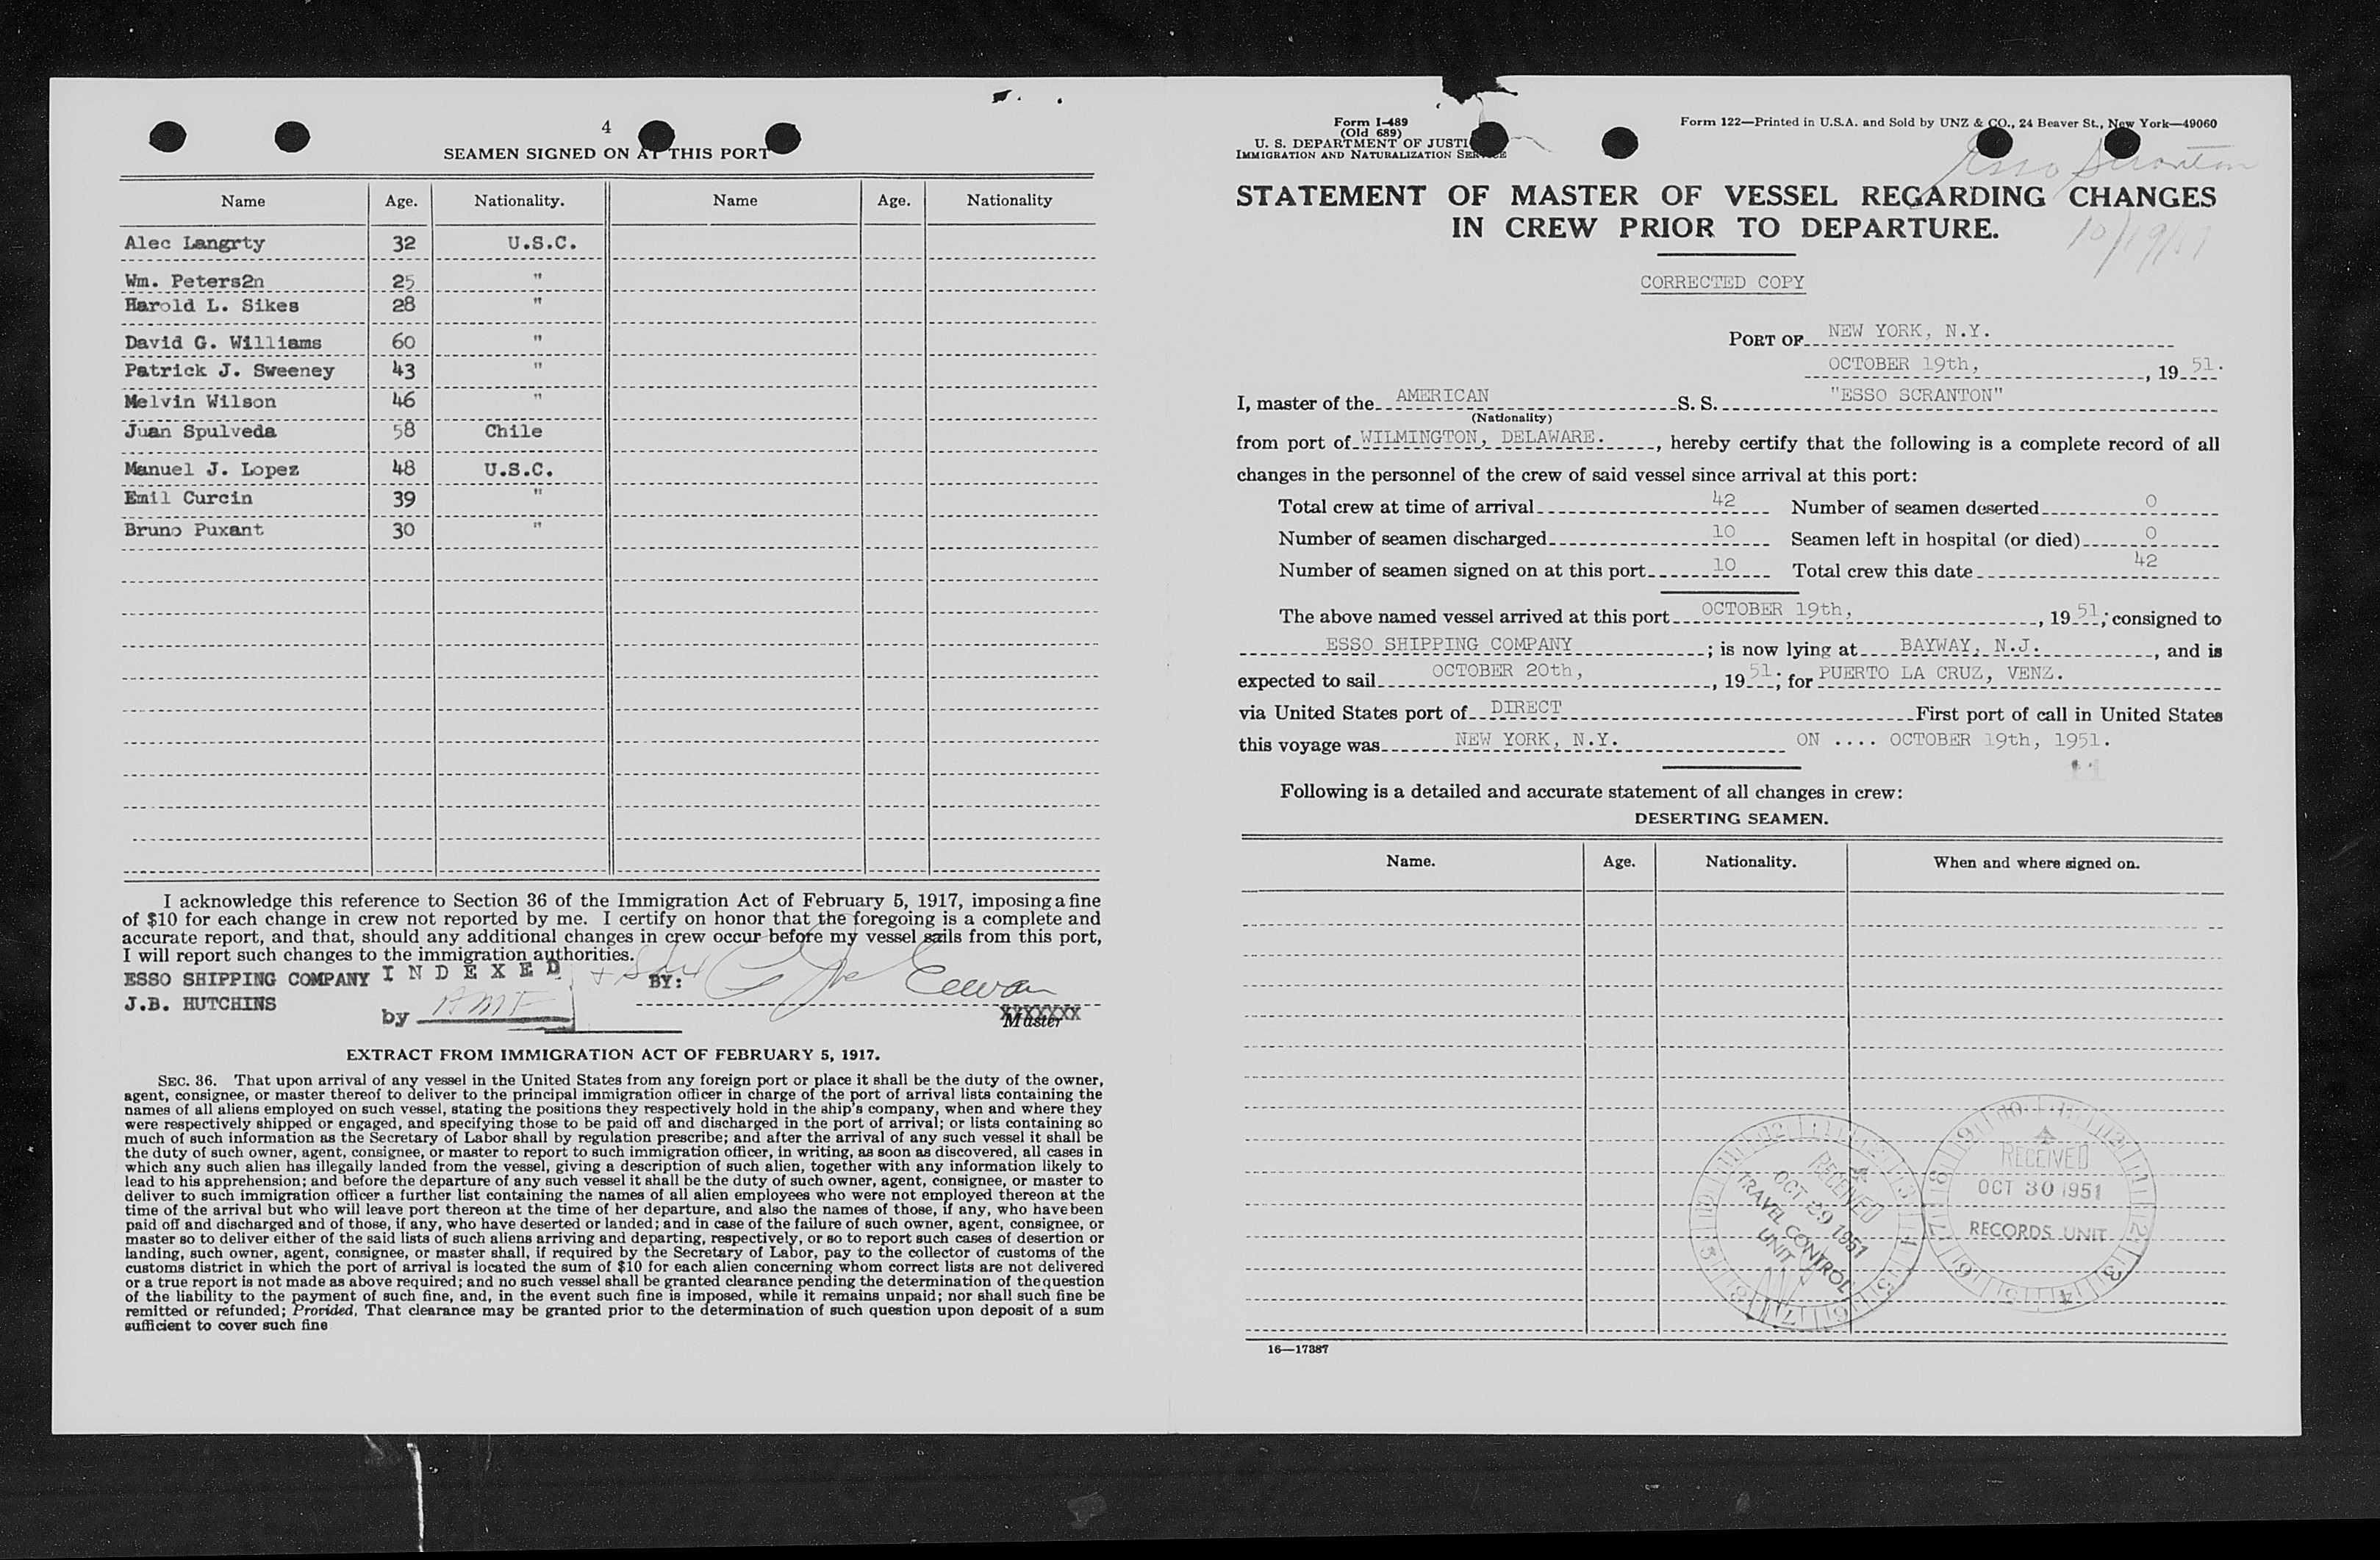 4
SEAMEN SIGNED ON AT THIS PORT
Name Age. Nationality. Name Age. Nationality
Alec Langrty 32 U.S.C.
Wm. Peters2n 25 "
Harold L. Sikes 28 "
David G. Williams 60 "
Patrick J. Sweeney 43 "
Melvin Wilson 46 "
Juan Spulveda 58 Chile
Manuel J. Lopez 48 U.S.C.
Emil Curcin 39 "
Bruno Puxant 30 "
I acknowledge this reference to Section 36 of the Immigration Act of February 5, 1917, imposing a fine
of $10 for each change in crew not reported by me. I certify on honor that the foregoing is a complete and
accurate report, and that, should any additional changes in crew occur before my vessel sails from this port,
I will report such changes to the immigration authorities.
ESSO SHIPPING COMPANY INDEXED BY:
J.B. HUTCHINS
by AMF
XXXXXXX
Master
EXTRACT FROM IMMIGRATION ACT OF FEBRUARY 5, 1917.
SEC. 36. That upon arrival of any vessel in the United States from any foreign port or place it shall be the duty of the owner,
agent, consignee, or master thereof to deliver to the principal immigration officer in charge of the port of arrival lists containing the
names of all aliens employed on such vessel, stating the positions they respectively hold in the ship's company, when and where they
were respectively shipped or engaged, and specifying those to be paid off and discharged in the port of arrival; or lists containing so
much of such information as the Secretary of Labor shall by regulation prescribe; and after the arrival of any such vessel it shall be
the duty of such owner, agent, consignee, or master to report to such immigration officer, in writing, as soon as discovered, all cases in
which any such alien has illegally landed from the vessel, giving a description of such alien, together with any information likely to
lead to his apprehension; and before the departure of any such vessel it shall be the duty of such owner, agent, consignee, or master to
deliver to such immigration officer a further list containing the names of all alien employees who were not employed thereon at the
time of the arrival but who will leave port thereon at the time of her departure, and also the names of those, if any, who have been
paid off and discharged and of those, if any, who have deserted or landed; and in case of the failure of such owner, agent, consignee, or
master so to deliver either of the said lists of such aliens arriving and departing, respectively, or so to report such cases of desertion or
landing, such owner, agent, consignee, or master shall, if required by the Secretary of Labor, pay to the collector of customs of the
customs district in which the port of arrival is located the sum of $10 for each alien concerning whom correct lists are not delivered
or a true report is not made as above required; and no such vessel shall be granted clearance pending the determination of the question
of the liability to the payment of such fine, and, in the event such fine is imposed, while it remains unpaid; nor shall such fine be
remitted or refunded; Provided, That clearance may be granted prior to the determination of such question upon deposit of a sum
sufficient to cover such fine
Form I-489
(Old 689)
U. S. DEPARTMENT OF JUSTI
IMMIGRATION AND NATURALIZATION SERVICE
Form 122—Printed in U.S.A. and Sold by UNZ & CO., 24 Beaver St., New York—49060
Esso Scranton
STATEMENT OF MASTER OF VESSEL REGARDING CHANGES
IN CREW PRIOR TO DEPARTURE.
10/19/51
CORRECTED COPY
PORT OF NEW YORK, N.Y.
OCTOBER 19th, , 19 51.
I, master of the AMERICAN S. S. "ESSO SCRANTON"
(Nationality)
from port of WILMINGTON, DELAWARE. , hereby certify that the following is a complete record of all
changes in the personnel of the crew of said vessel since arrival at this port:
Total crew at time of arrival 42 Number of seamen deserted 0
Number of seamen discharged 10 Seamen left in hospital (or died) 0
Number of seamen signed on at this port 10 Total crew this date 42
The above named vessel arrived at this port OCTOBER 19th, , 19 51; consigned to
ESSO SHIPPING COMPANY ; is now lying at BAYWAY, N.J. , and is
expected to sail OCTOBER 20th, , 19 51; for PUERTO LA CRUZ, VENZ.
via United States port of DIRECT First port of call in United States
this voyage was NEW YORK, N.Y. ON .... OCTOBER 19th, 1951.
11
Following is a detailed and accurate statement of all changes in crew:
DESERTING SEAMEN.
Name. Age. Nationality. When and where signed on.
RECEIVED
OCT 29 1951
TRAVEL CONTROL
UNIT
RECEIVED
OCT 30 1951
RECORDS UNIT
16—17387